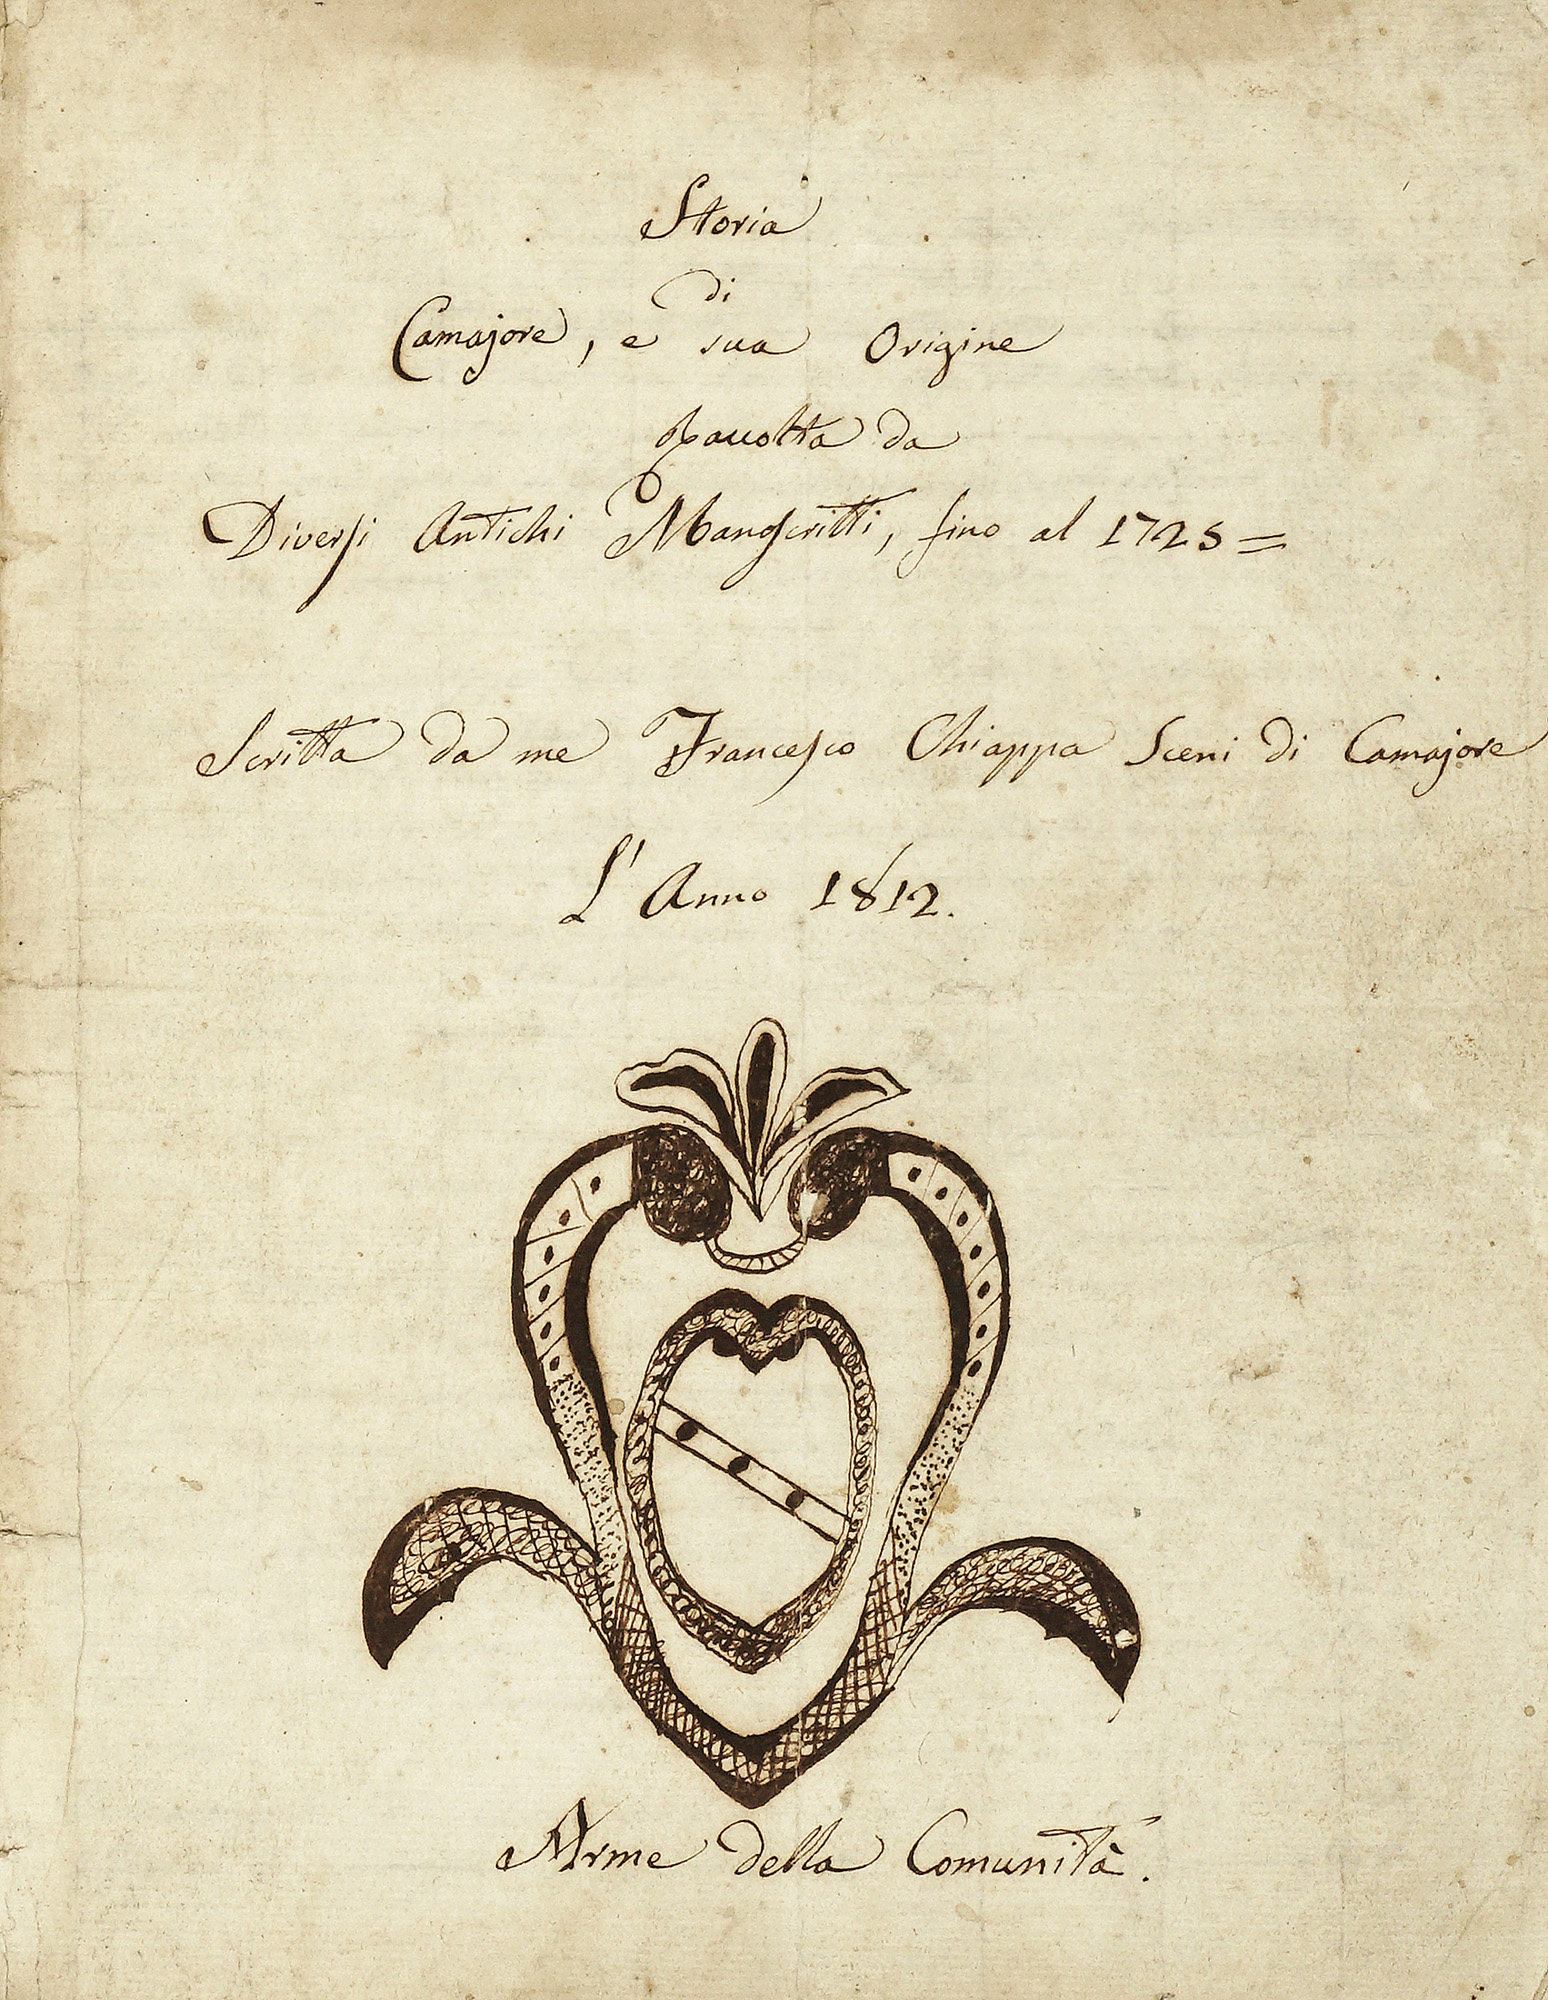 Storia
di
Camajore, e sua Origine
Raccolta da
Diversi Antichi Manoscritti, fino al 1725 =
Scritta da me Francesco Chiappa Sceni di Camajore
L'Anno 1812.
Arme della Comunità.